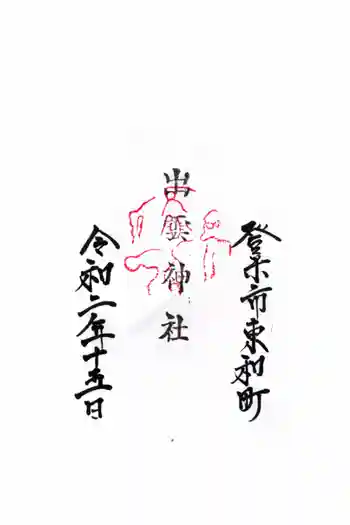 登米市東和町
出雲神社
令和二年十五日